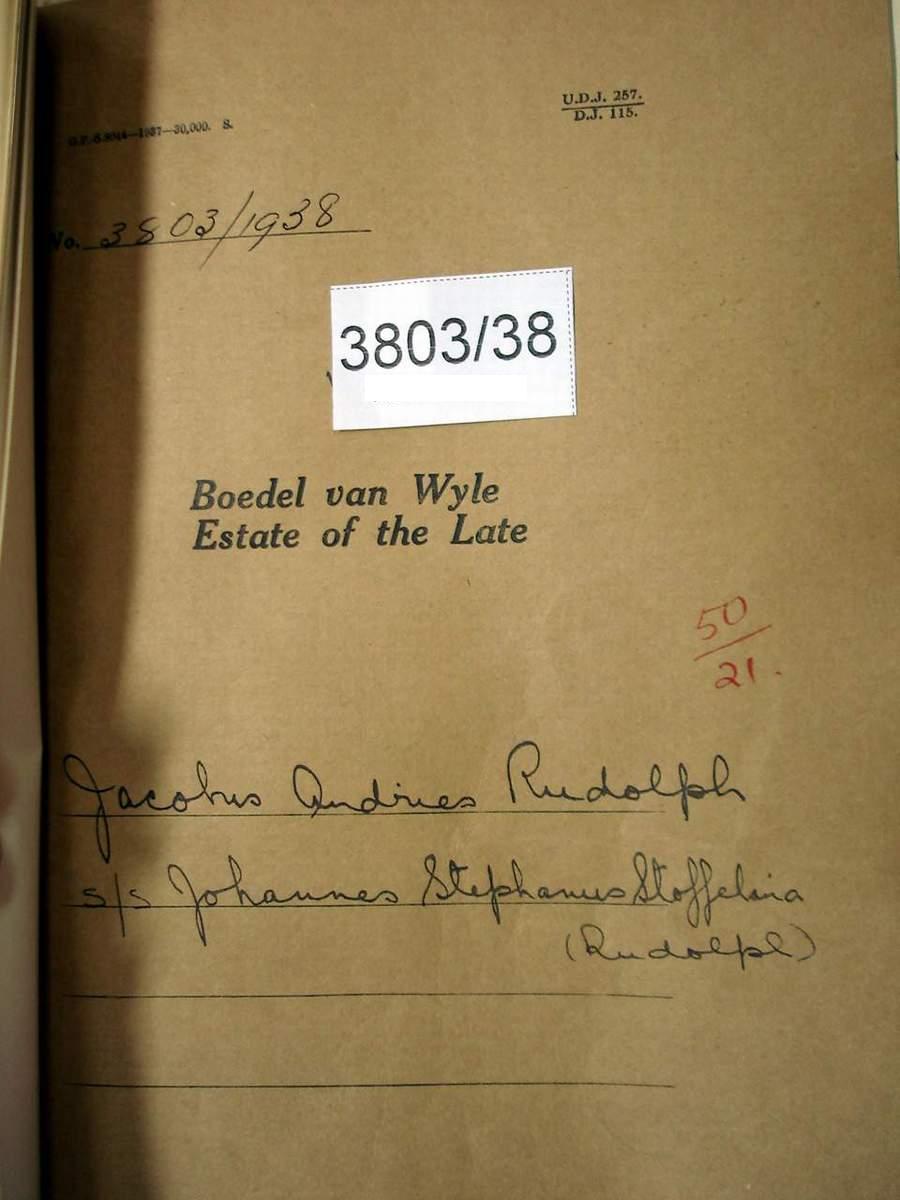 U.D.J. 257.
D.J. 115.
G.P.-S.8044—1937—30,000. S.
No. 3803/1938
3803/38
Boedel van Wyle
Estate of the Late
50
21.
Jacobus Andries Rudolph
s/s Johannes Stephanus Stoffelina
(Rudolph)